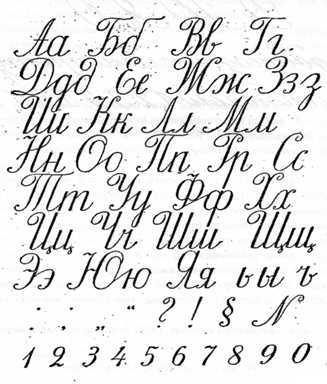 Аа Бб Вв Гг.
Ддд Ее Жж Ззз
Ии Кк Лл Мм
Нн Оо Пп Рр Сс
Тт Уу Фф Хх
Цц Чч Шш Щщ
Ээ Юю Яя ь ы ъ
: ; „ “ ? ! § N
1 2 3 4 5 6 7 8 9 0